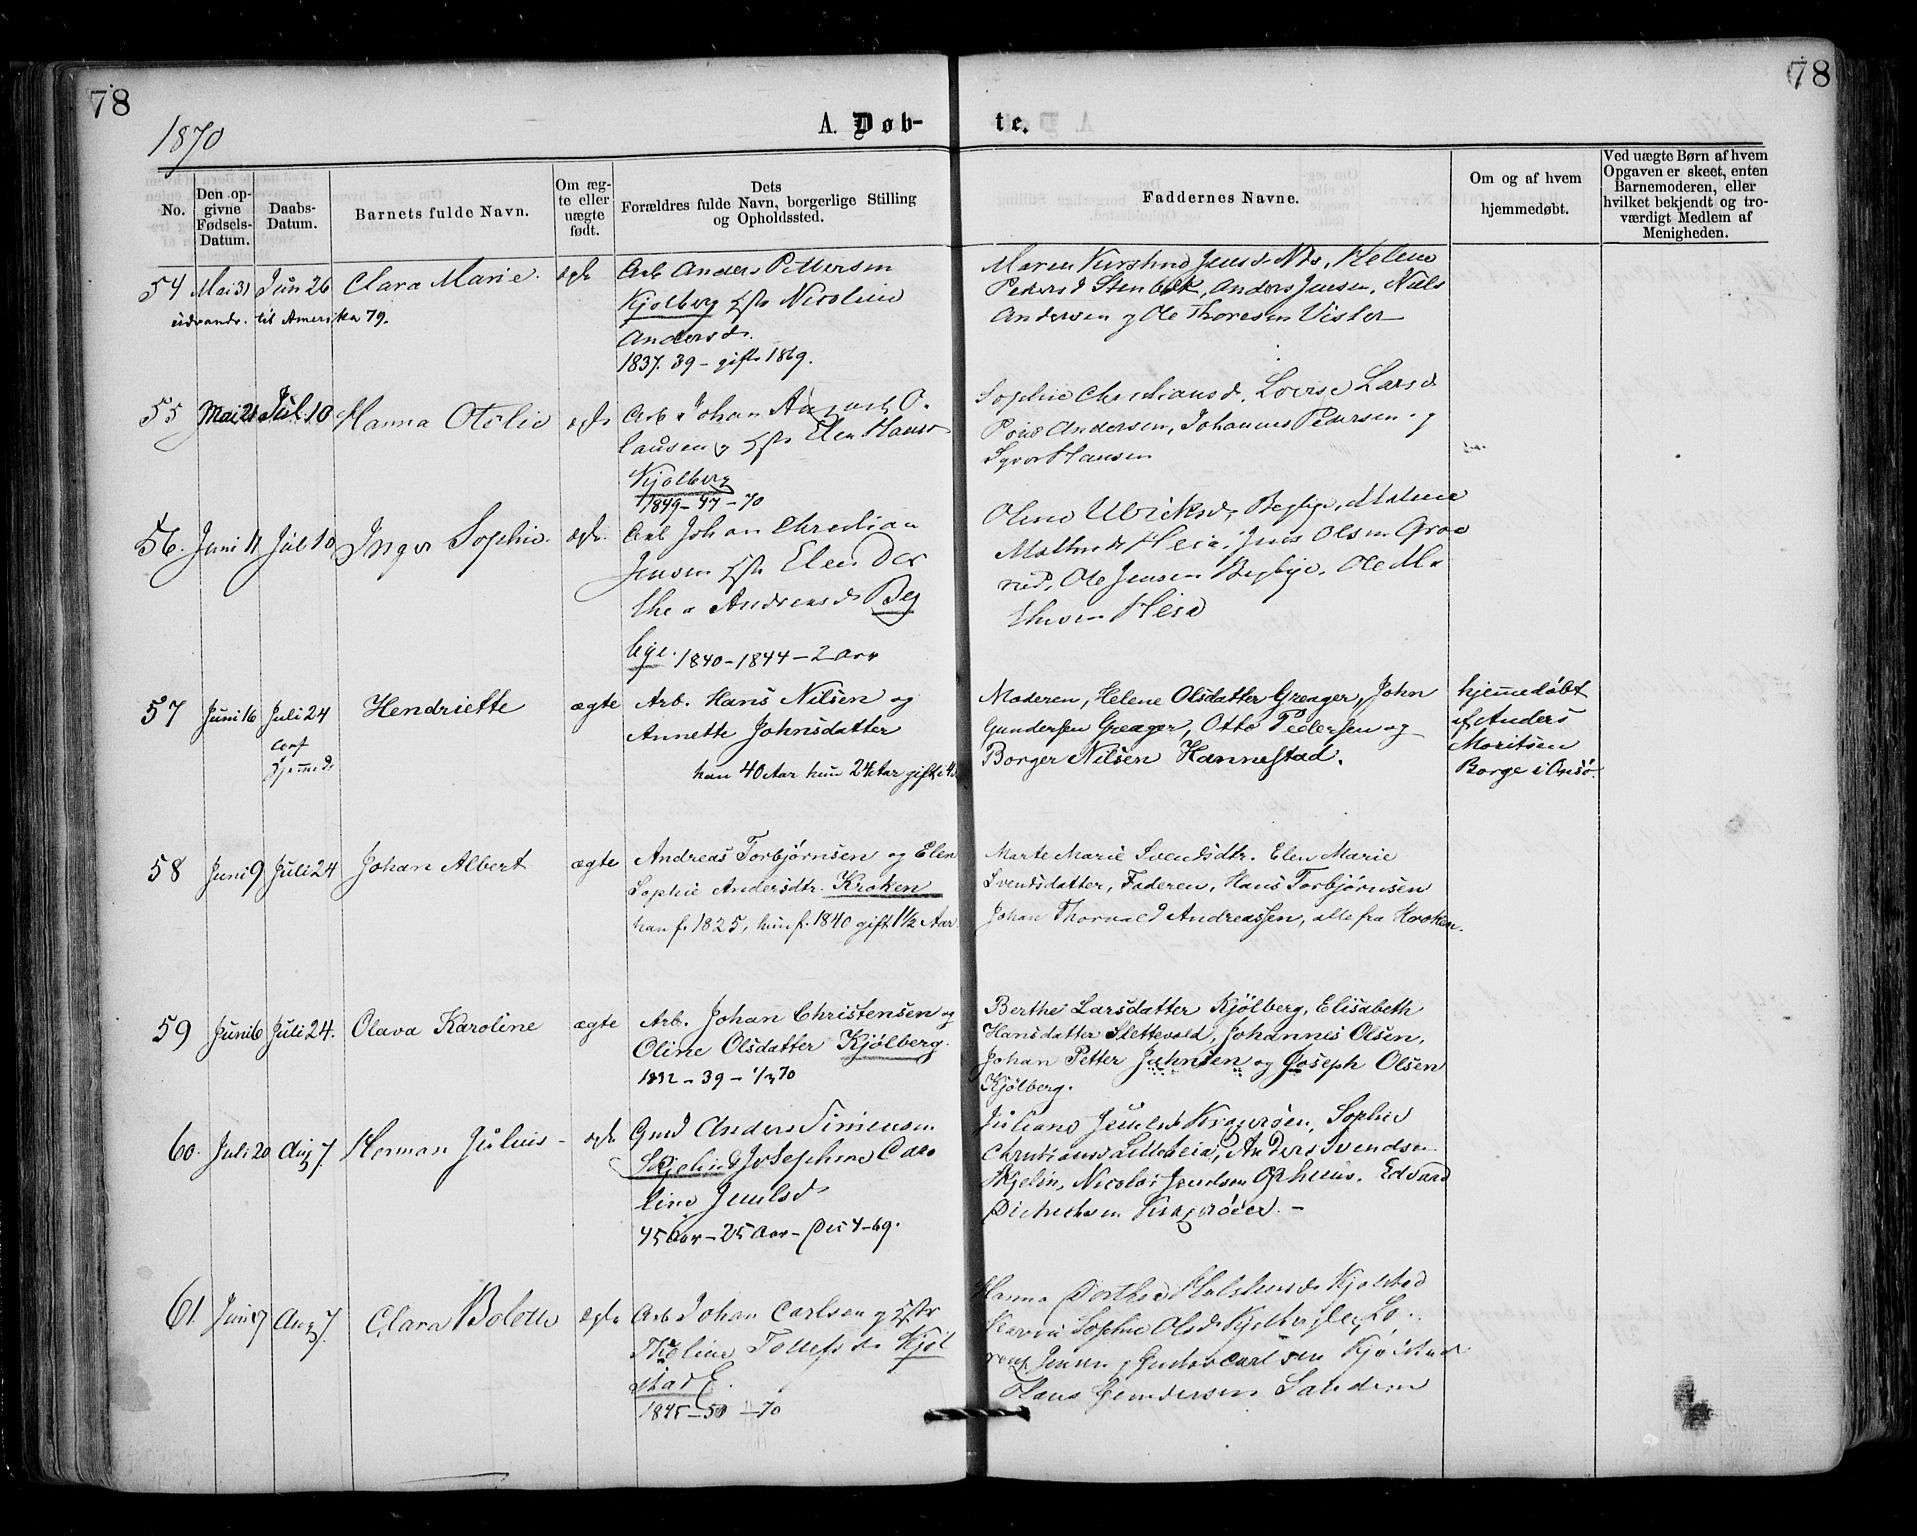 78
78
1870
A. Døb-
te.
No.
Den op-
givne
Fødsels-
Datum.
Daabs-
Datum.
Barnets fulde Navn.
Om æg-
te eller
uægte
født.
Dets
Forældres fulde Navn, borgerlige Stilling
og Opholdssted.
Faddernes Navne.
Om og af hvem
hjemmedøbt.
Ved uægte Børn af hvem
Opgaven er skeet, enten
Barnemoderen, eller
hvilket bekjendt og tro-
værdigt Medlem af
Menigheden.
54 Mai 31 Jun 26 Clara Marie. ægte
udvandr. til Amerika 79.
Arb Anders Pettersen
Kjølberg Nicoline
Andersd.
1837. 39 - gift 1869.
Maren Jensd Helene
Pedersd Stenbek, Anders Jensen, Niels
Andersen og Ole Thoresen Vister
55 Mai 21 Jul. 10 Hanna Otilie ægte
Arb Johan August O.
lausen og Elen Hansd
Kjølberg
1849 - 47 - 70
Sophie Christiansd, Lovise Larsd
Andersen, Johannes Pedersen og
Syver Hansen
56. Juni 11 Jul 10 Inger Sophie. ægte.
Arb Johan Christian
Jensen Elen Dor
thea Andreasd Beg
bye. 1840 - 1844 - 2 Aar
Olene Ulricksd, Begbye, Malene
Mathisd Heia, Jens Olsen Graa
rød, Ole Jensen Begbye, Ole Ma
thisen Heia
57 Juni 16 Juli 24 Hendriette ægte
conf
hjemmed.
Arb. Hans Nilsen og
Annette Johnsdatter
han 40 Aar hun 24 Aar gift
Moderen, Helene Olsdatter Greager, John
Gundersen Greager, Otto Pedersen og
Borger Nilsen Hannestad.
hjemmedøbt
af Anders
Moritsen
Borge i Onsø.
58 Juni 9 Juli 24 Johan Albert ægte
Andreas Torbjørnsen og Elen
Sophie Andersdtr. Kroken
han f. 1825, hun f. 1840 gift 1½ Aar.
Marte Marie Svendsdtr. Elen Marie
Svendsdatter, Faderen, Hans Torbjørnsen
Johan Thorvald Andreassen, alle fra Kroken.
59 Juni 6 Juli 24. Olava Karoline ægte
Arb. Johan Christensen og
Oline Olsdatter Kjølberg.
1832 - 39 - 1/3 70
Berthe Larsdatter Kjølberg, Elisabeth
Hansdatter Slettevold, Johannes Olsen,
Johan Petter Jahnsen og Joseph Olsen
Kjølberg.
60. Juli 20 Aug 7. Herman Julius - ægte
Gmd Anders Simensen
Skjelin Josephine Caro
line Juulsd
45 Aar - 25 Aar - Dec 4 - 69.
Juliane Juulsd Kragerøen, Sophie
Christiansd Lilleheia, Anders Svendsen
Skjelin, Nicolai Juulsen Opheim, Edvard
Dietrichsen Kragerøen. -
61. Juni 17 Aug 7 Clara Bolette ægte
Arb Johan Carlsen og Hstr
Theoline Tollefsd Kjøl
stad E.
1845 - 50 - 70
Hanna Dorthea Kjølstad
Karen Sophie Olsd Kjølberg Lo
renz Jensen og Gustav Carlsen Kjølstad
Claus Gundersen Sandem